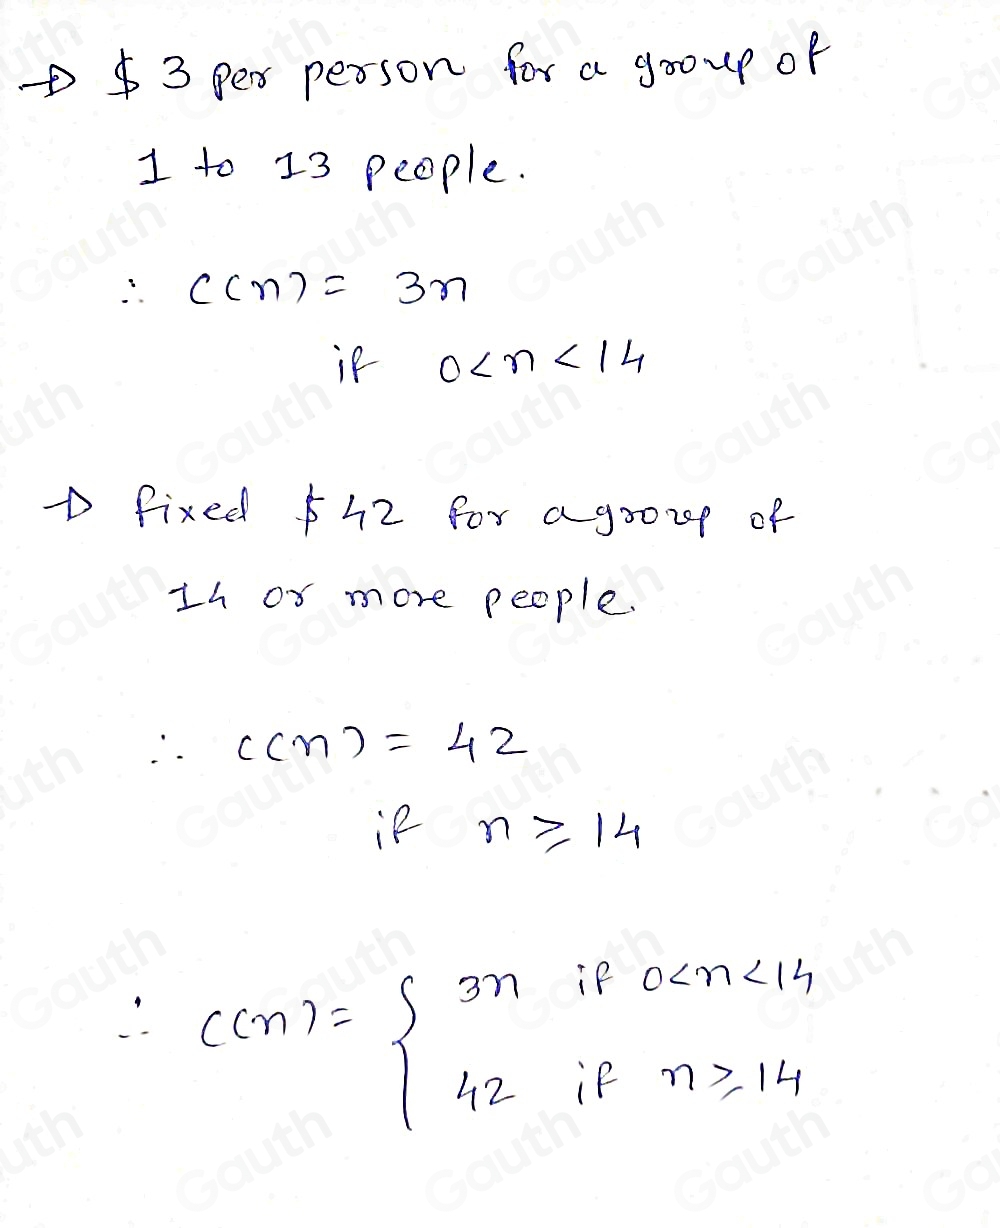 → $ 3 per person for a group of
1 to 13 people.
∴ C(n) = 3n
if 0<n<14
→ fixed $ 42 for a group of
14 or more people.
∴ C(n) = 42
if n ≥ 14
∴ C(n) = { 3n if 0<n<14
42 if n ≥ 14